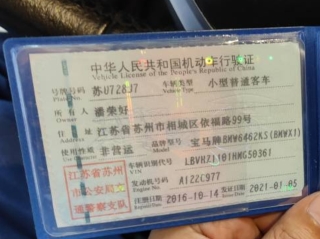 中华人民共和国机动车行驶证
Vehicle License of the People's Republic of China
号牌号码 苏U728U7 车辆类型 小型普通客车
Vehicle Type
所有人 潘荣好
Owner
住址 江苏省苏州市相城区依福路99号
Address
使用性质 非营运 品牌型号 宝马牌BMW6462KS(BMWX1)
江苏省苏州 车辆识别代号 LBVHZ1101HMG50361
VIN
市公安局交 发动机号码 A122C977
通警察支队 注册日期 2016-10-14 发证日期 2021-01-05